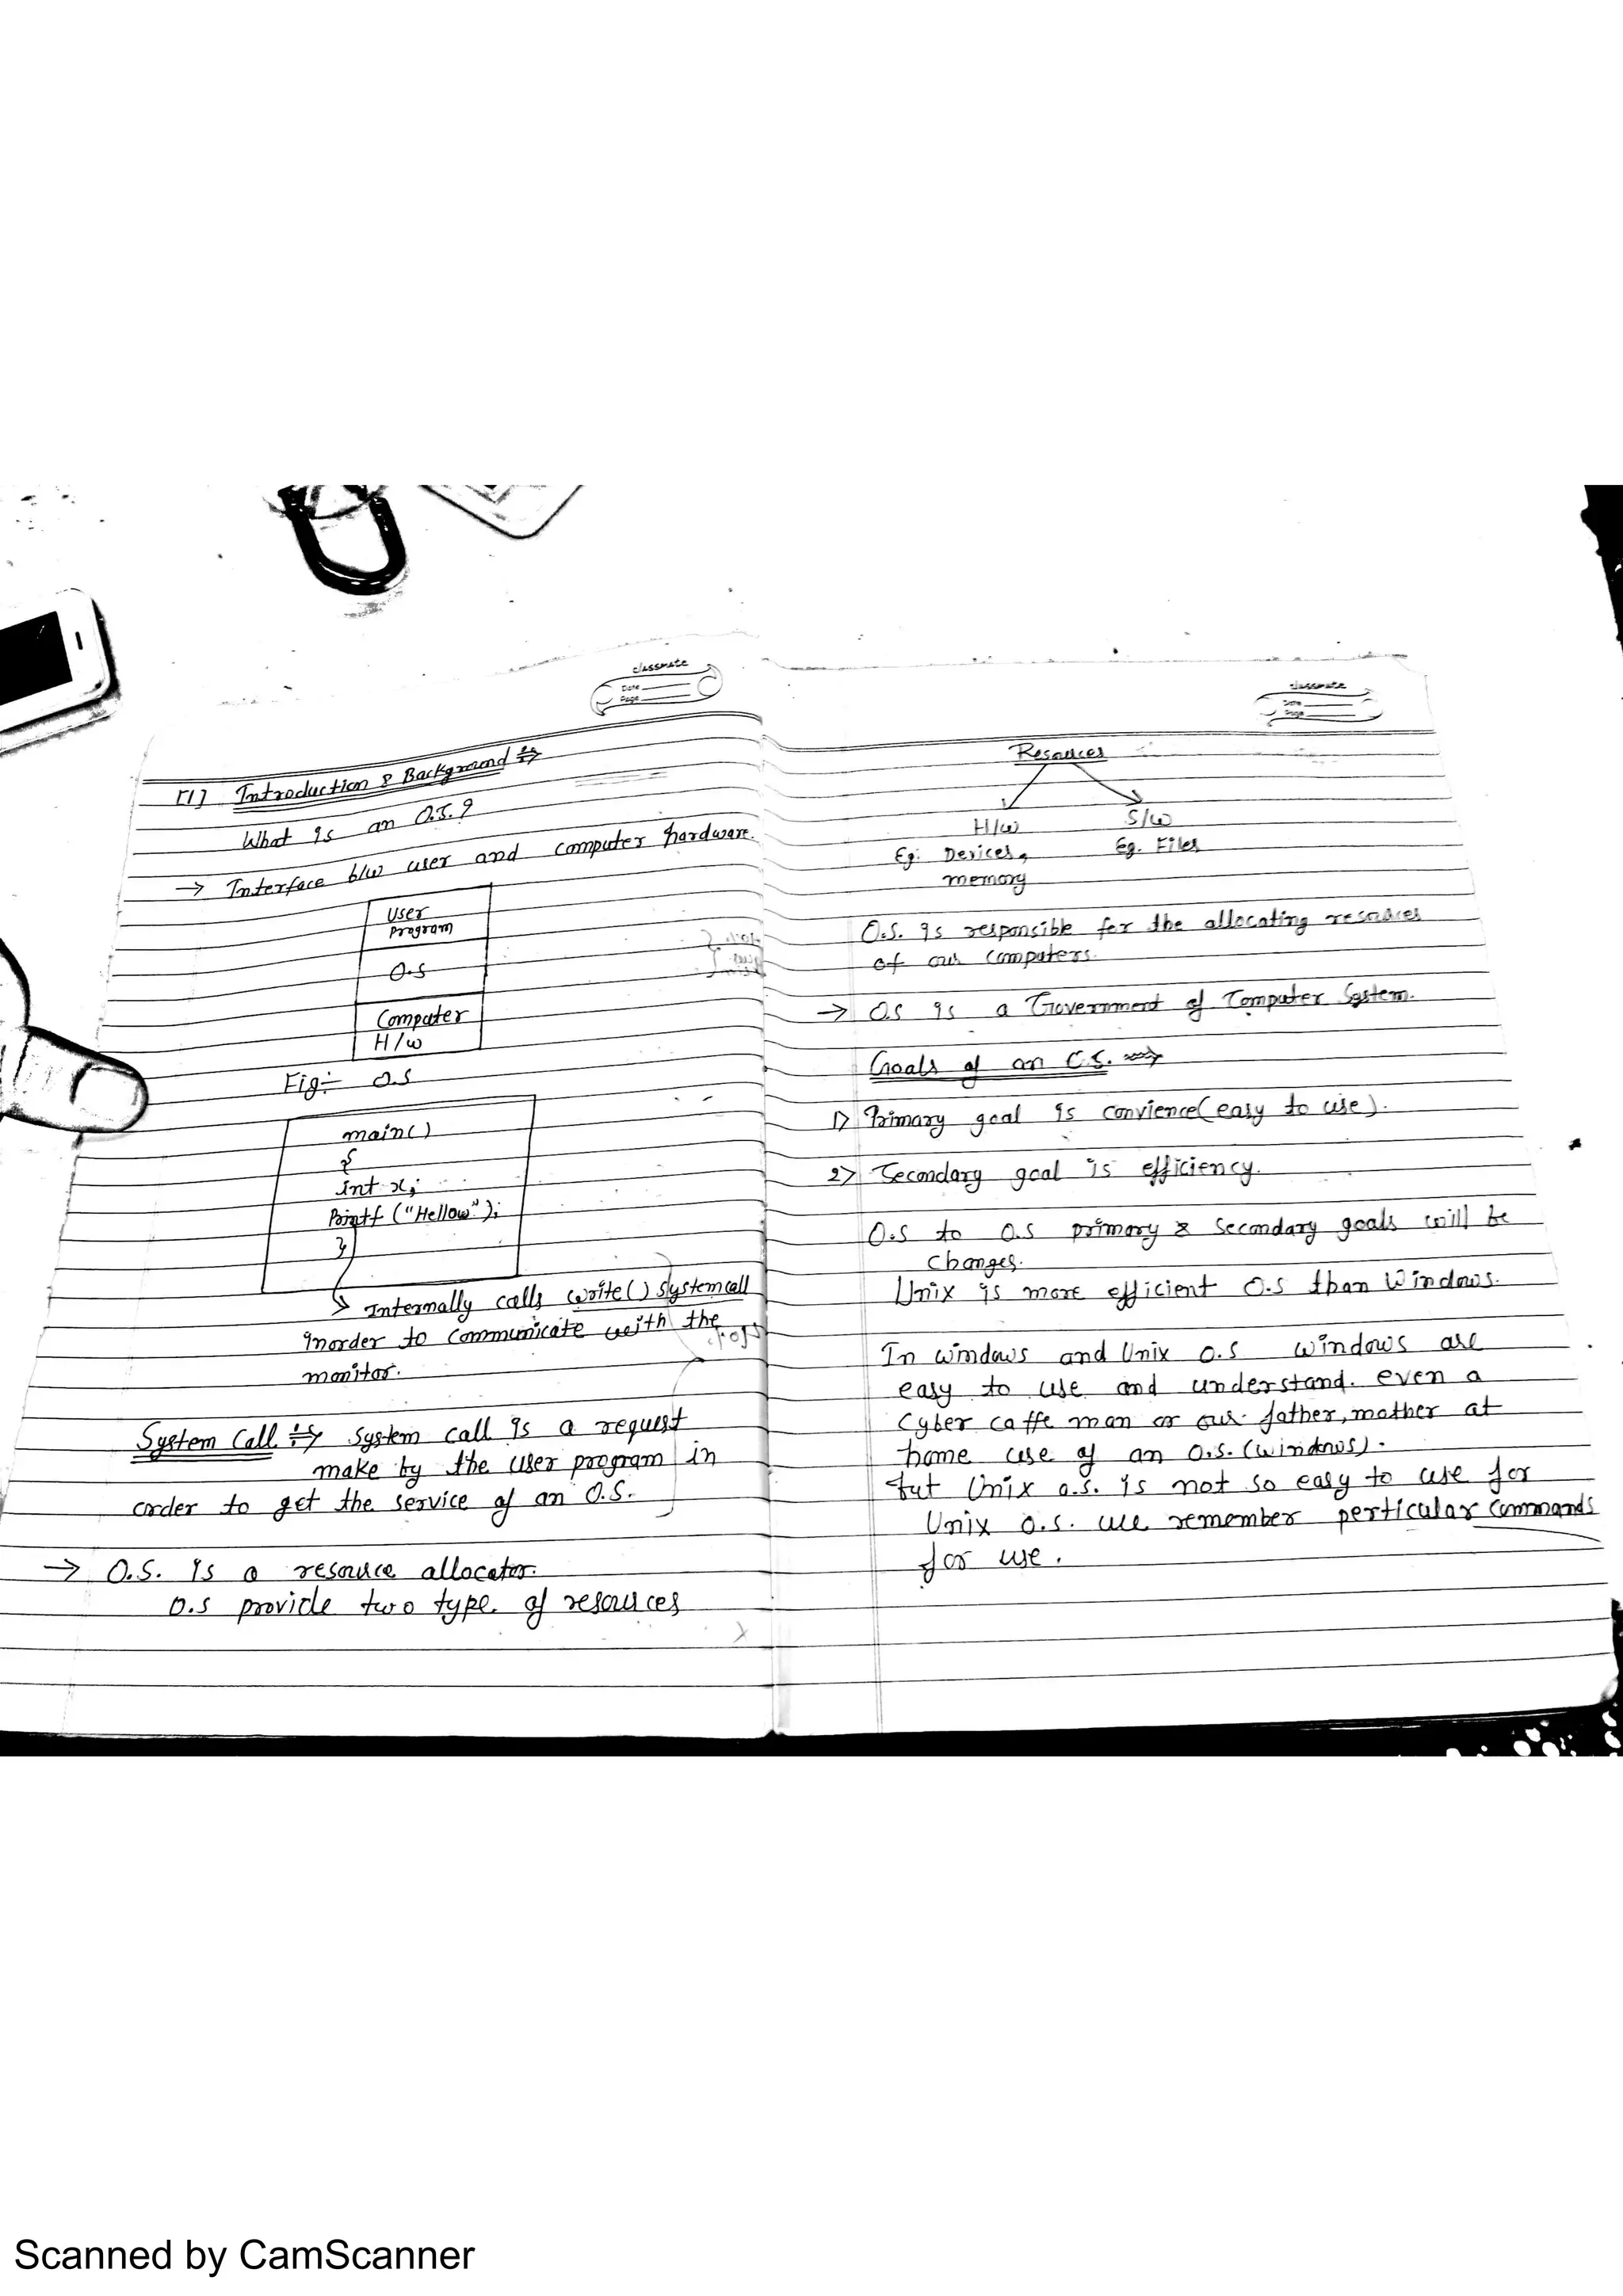 classmate
Date
Page
[1] Introduction & Background
What is an O.S.?
→ Interface b/w user and computer hardware.
User
program
O.S
Computer
H/w
Fig:- O.S
main()
{
int x;
Printf ("Hellow");
}
Internally calls write() System call
inorder to communicate with the
monitor.
System Call ⇒ System call is a request
make by the user program in
order to get the service of an O.S.
→ O.S. is a resource allocator.
O.S provide two type of resources
classmate
Date
Page
Resources
H/w S/w
Eg: Devices, Eg. Files
memory
O.S. is responsible for the allocating resources
of our computers.
→ O.S is a Government of Computer System.
Goals of an O.S.
1> Primary goal is convience(easy to use).
2> Secondary goal is efficiency.
O.S to O.S primary & secondary goals will be
changes.
Unix is more efficient O.S than Windows.
In windows and Unix O.S windows are
easy to use and understand. even a
Cyber caffe man or our father, mother at
home use of an O.S. (windows).
but Unix O.S. is not so easy to use for
Unix O.S. we remember perticular commands
for use.
Scanned by CamScanner